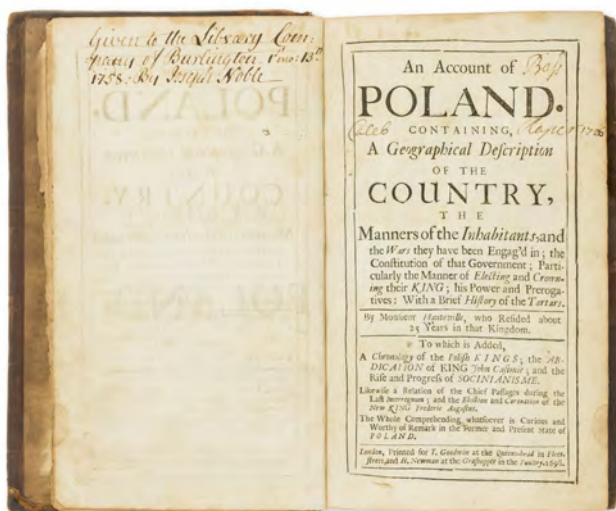 Given to the Library Com-
pany of Burlington 1st mo: 13th
1758: By Joseph Noble
An Account of
POLAND.
CONTAINING,
A Geographical Deſcription
OF THE
COUNTRY,
THE
Manners of the Inhabitants, and
the Wars they have been Engag'd in; the
Conſtitution of that Government; Parti-
cularly the Manner of Electing and Crown-
ing their KING; his Power and Preroga-
tives: With a Brief Hiſtory of the Tartars.
By Monſieur Hauteville, who Reſided about
25 Years in that Kingdom.
To which is Added,
A Chronology of the Poliſh KINGS; the AB-
DICATION of KING John Caſimir; and the
Riſe and Progreſs of SOCINIANISME.
Likewiſe a Relation of the Chief Paſſages during the
Laſt Interregnum; and the Election and Coronation of the
New KING Frederic Auguſtus.
The Whole Comprehending whatſoever is Curious and
Worthy of Remark in the Former and Preſent State of
POLAND.
London, Printed for T. Goodwin at the Queens-head in Fleet-
ſtreet, and H. Newman at the Graſhopper in the Poultry. 1698.
Caleb